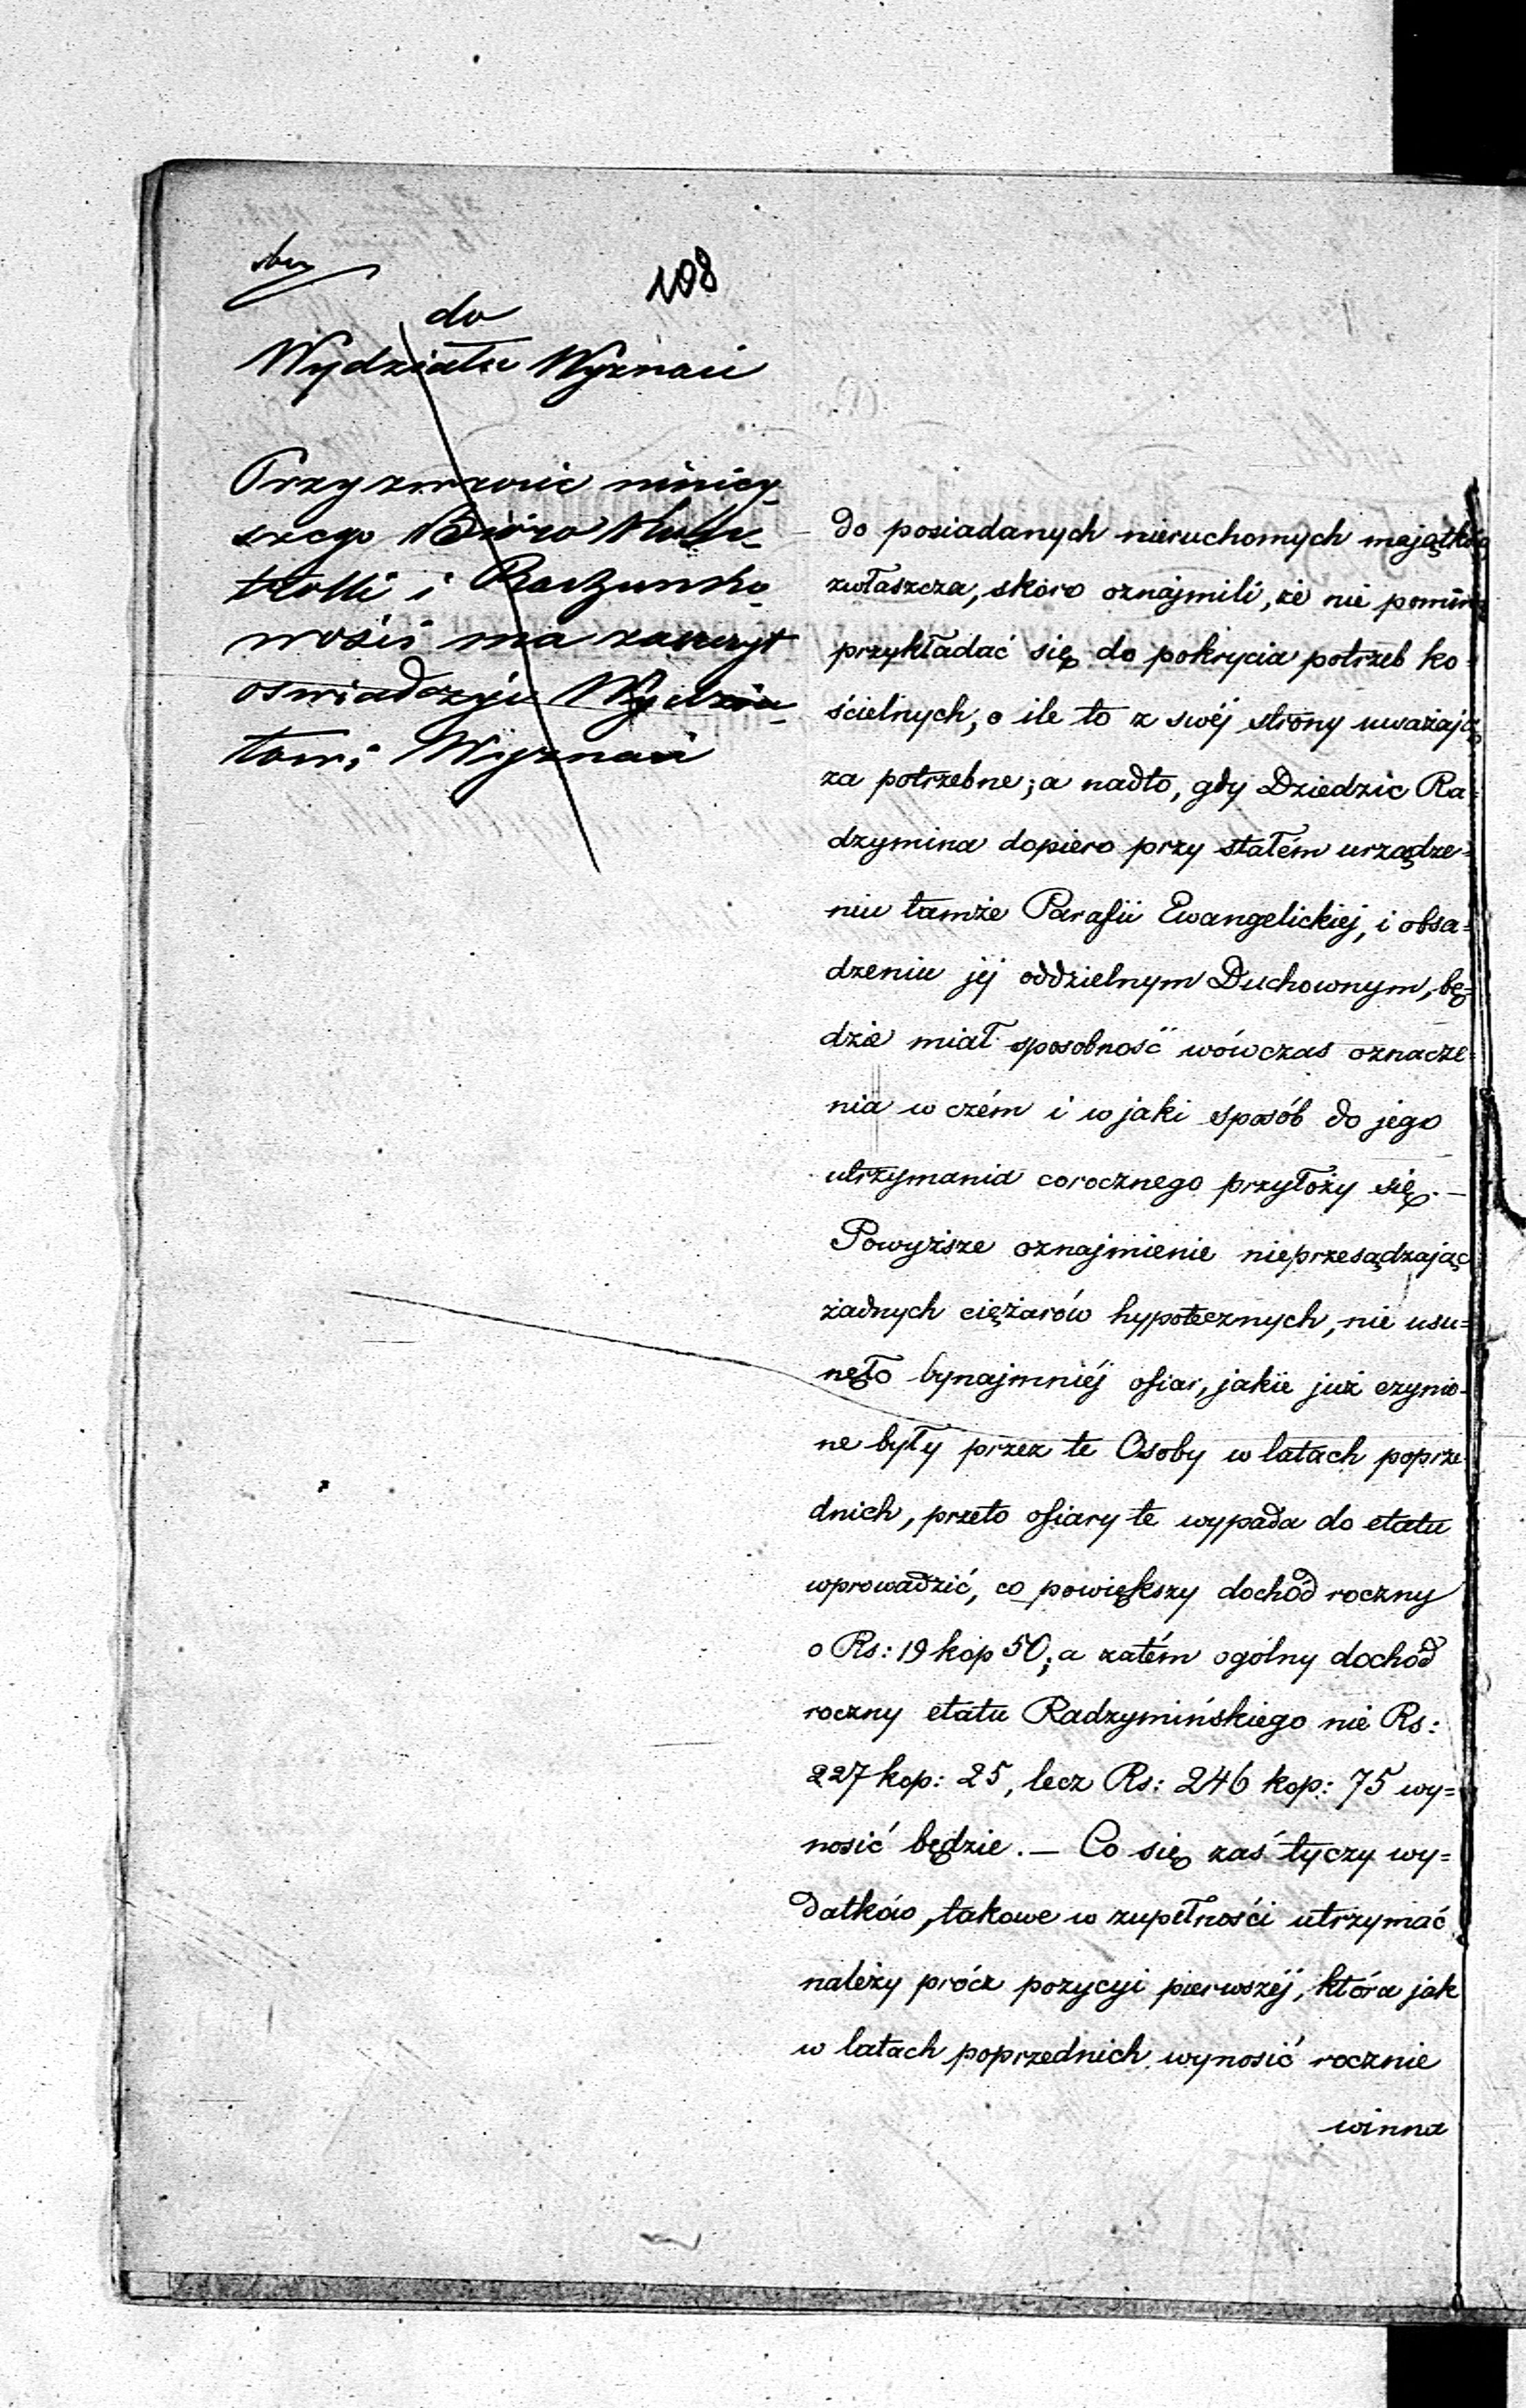 108
do
Wydziału Wyznań
Przy zwrocie niniej-
szego Biuro Kon-
trolli i Rachunko-
wości ma zaszczyt
oświadczyć Wydzia-
łowi Wyznań
do posiadanych nieruchomych majątków
zwłaszcza, skoro oznajmili, że nie pominą
przykładać się do pokrycia potrzeb ko=
ścielnych, o ile to z swéj strony uważają
za potrzebne; a nadto, gdy Dziedzic Ra=
dzymina dopiero przy stałém urządze=
niu tamże Parafii Ewangelickiej, i obsa=
dzeniu jéj oddzielnym Duchownym, bę=
dzie miał sposobność wówczas oznacze=
nia w czém i w jaki sposób do jego
utrzymania corocznego przyłoży się. —
Powyższe oznajmienie nieprzesądzając
żadnych ciężarów hypotecznych, nie usu=
nęło bynajmniéj ofiar, jakie już czynio-
ne były przez te Osoby w latach poprze
dnich, przeto ofiary te wypada do etatu
wprowadzić, co powiększy dochód roczny
o Rs: 19 kop 50; a zatém ogólny dochód
roczny etatu Radzymińskiego nie Rs:
227 kop: 25, lecz Rs: 246 kop: 75 wy=
nosić będzie. — Co się zaś tyczy wy=
datków, takowe w zupełności utrzymać
należy prócz pozycyi pierwszéj, która jak
w latach poprzednich wynosić rocznie
winna